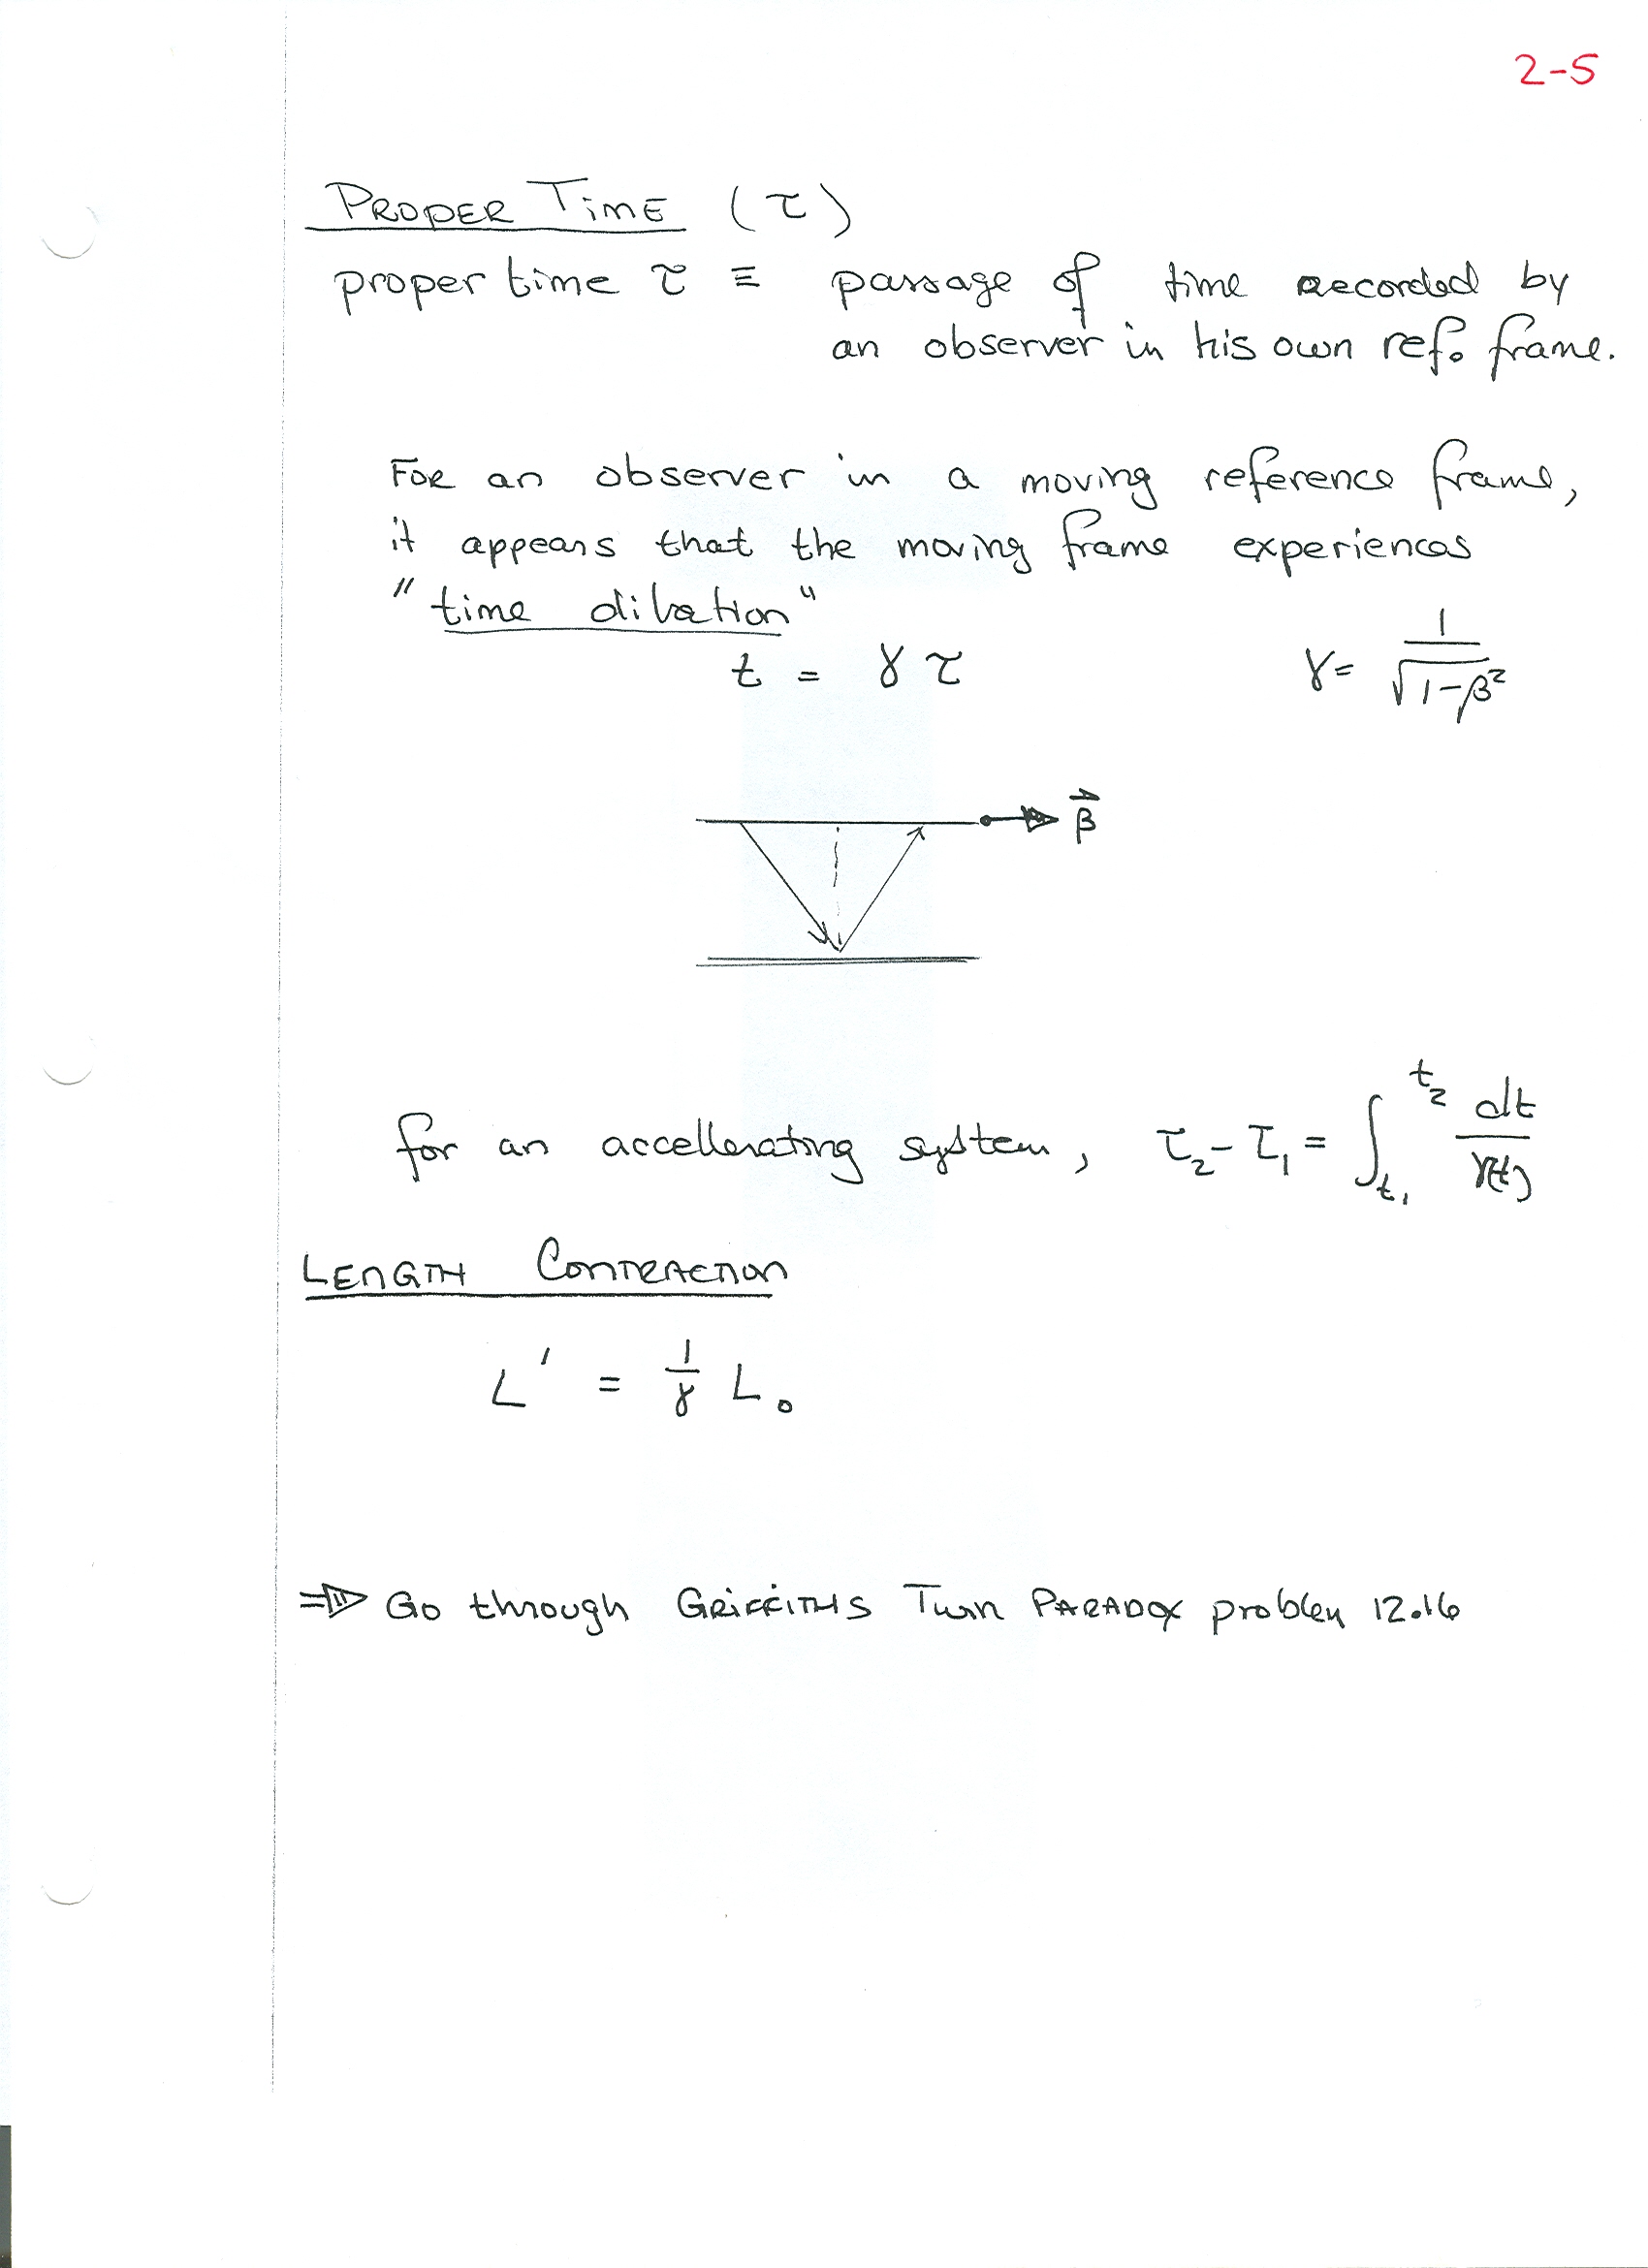 2-5
PROPER TIME (τ)
proper time τ ≡ passage of time recorded by
an observer in his own ref. frame.
FOR an observer in a moving reference frame,
it appears that the moving frame experiences
"time dilation"
t = γ τ γ = 1/√(1-β²)
β⃗
for an accellerating system, τ₂ - τ₁ = ∫_{t₁}^{t₂} dt/γ(t)
LENGTH CONTRACTION
L' = 1/γ L₀
⇒ Go through GRIFFITHS Twin PARADOX problem 12.16